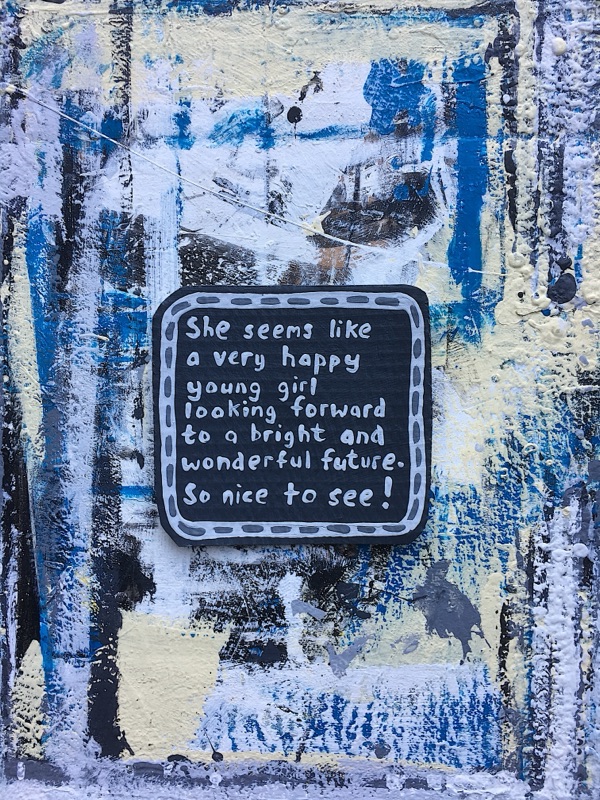 She seems like
a very happy
young girl
looking forward
to a bright and
wonderful future.
So nice to see!